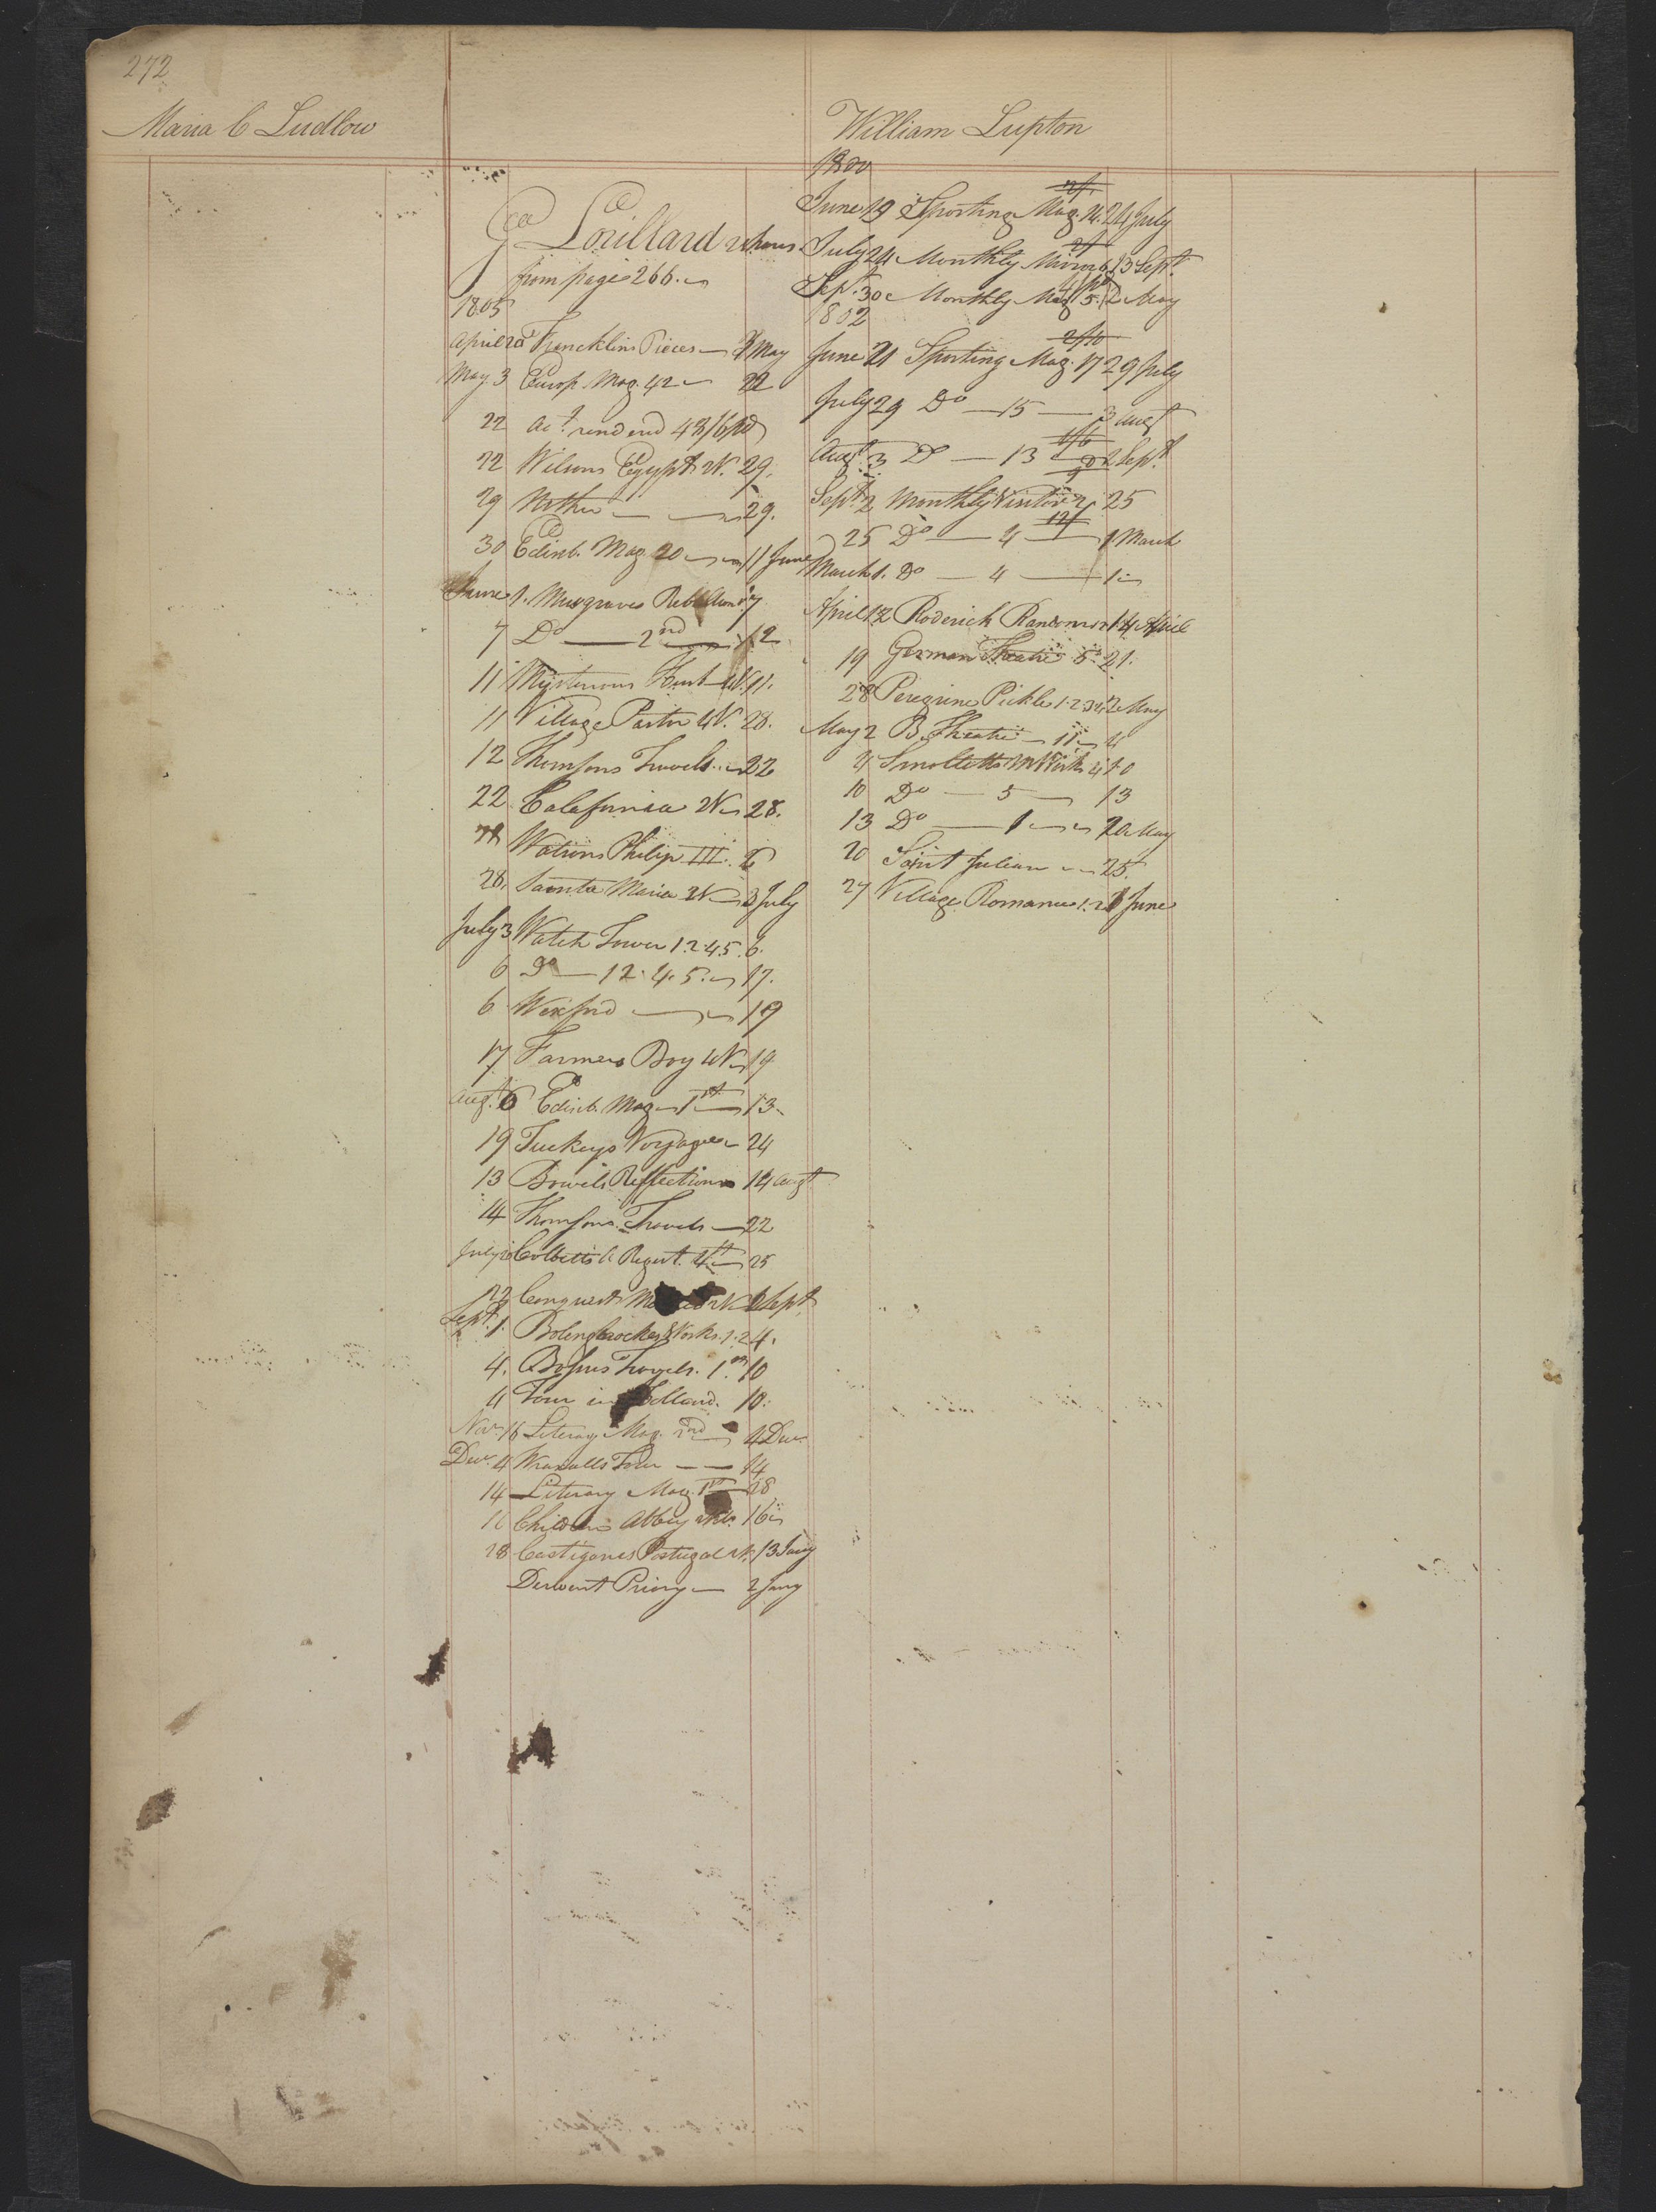 272
Maria C Ludlow
Geo Lorillard
from page 266.
1805
April 20 Francklins Pieces 3 May
May 3 Europ. Mag. 42 22
22 act. rendered 43/6 pd
22 Wilsons Egypt 2V. 29.
29 Mother 29.
30 Edinb. Mag. 20 11 June
June 1. Musgraves Rebellion 7
7 Do 2nd 12
11 Mysterious Husb 4V. 11.
11 Village Pastor 4V. 28.
12 Thomsons Travels 22
22 Calafurnia 2V 28.
Watsons Philip III. 6
28. Santa Maria 2V 3 July
July 3 Watch Tower 1.2.4.5. 6.
6 Do 1.2.4.5. 17.
6 Wexford 19
17 Farmers Boy 4V 19
Augt. 6 Edinb. Mag 1st 13.
19 Tuckeys Voyage 24
13 Bowels Reflections 14 Augt
14 Thomsons Travels 22
July Cobbetts A. Regist. 4th 25
22 Conquest 2V Sept.
Sept. 1. Bolingbrockes Works. 1.2 4.
4. Travels. 1st. 10
4 Tour in Holland. 10.
Nov. 16 Literary Mag. 2nd 4 Decr.
Decr. 4 Wraxalls Tour 14
14 Literary Mag. 1st 28
16 Children Abbey 16
28 Castigones Portugal 13 Jany
Derwent Priory 2 Jany
William Lupton
1800
June 19 Sporting Mag. 14. 24 July
July 24 Monthly Mirror 6. 13 Sept.
Sept. 30 Monthly Mag 5. 12 May
1802
2/10
June 21 Sporting Mag. 17 29 July
July 29 Do 15 3 Augt
Augt. 3 Do 13 2 Sept.
Sept. 2 Monthly Visitor 2 25
25 Do 4 1 March
March 1. Do 4 1
April 12 Roderick Random 14 April
19 German Theatre 5 21.
28 Peregrine Pickle 1.2.3.4. 2 May
May 2 B. Theatre 11 4
4 Smolletts M Works 4 10
10 Do 5 13
13 Do 1 20 May
20 Saint Julian 25.
27 Village Romance 1.2 1 June